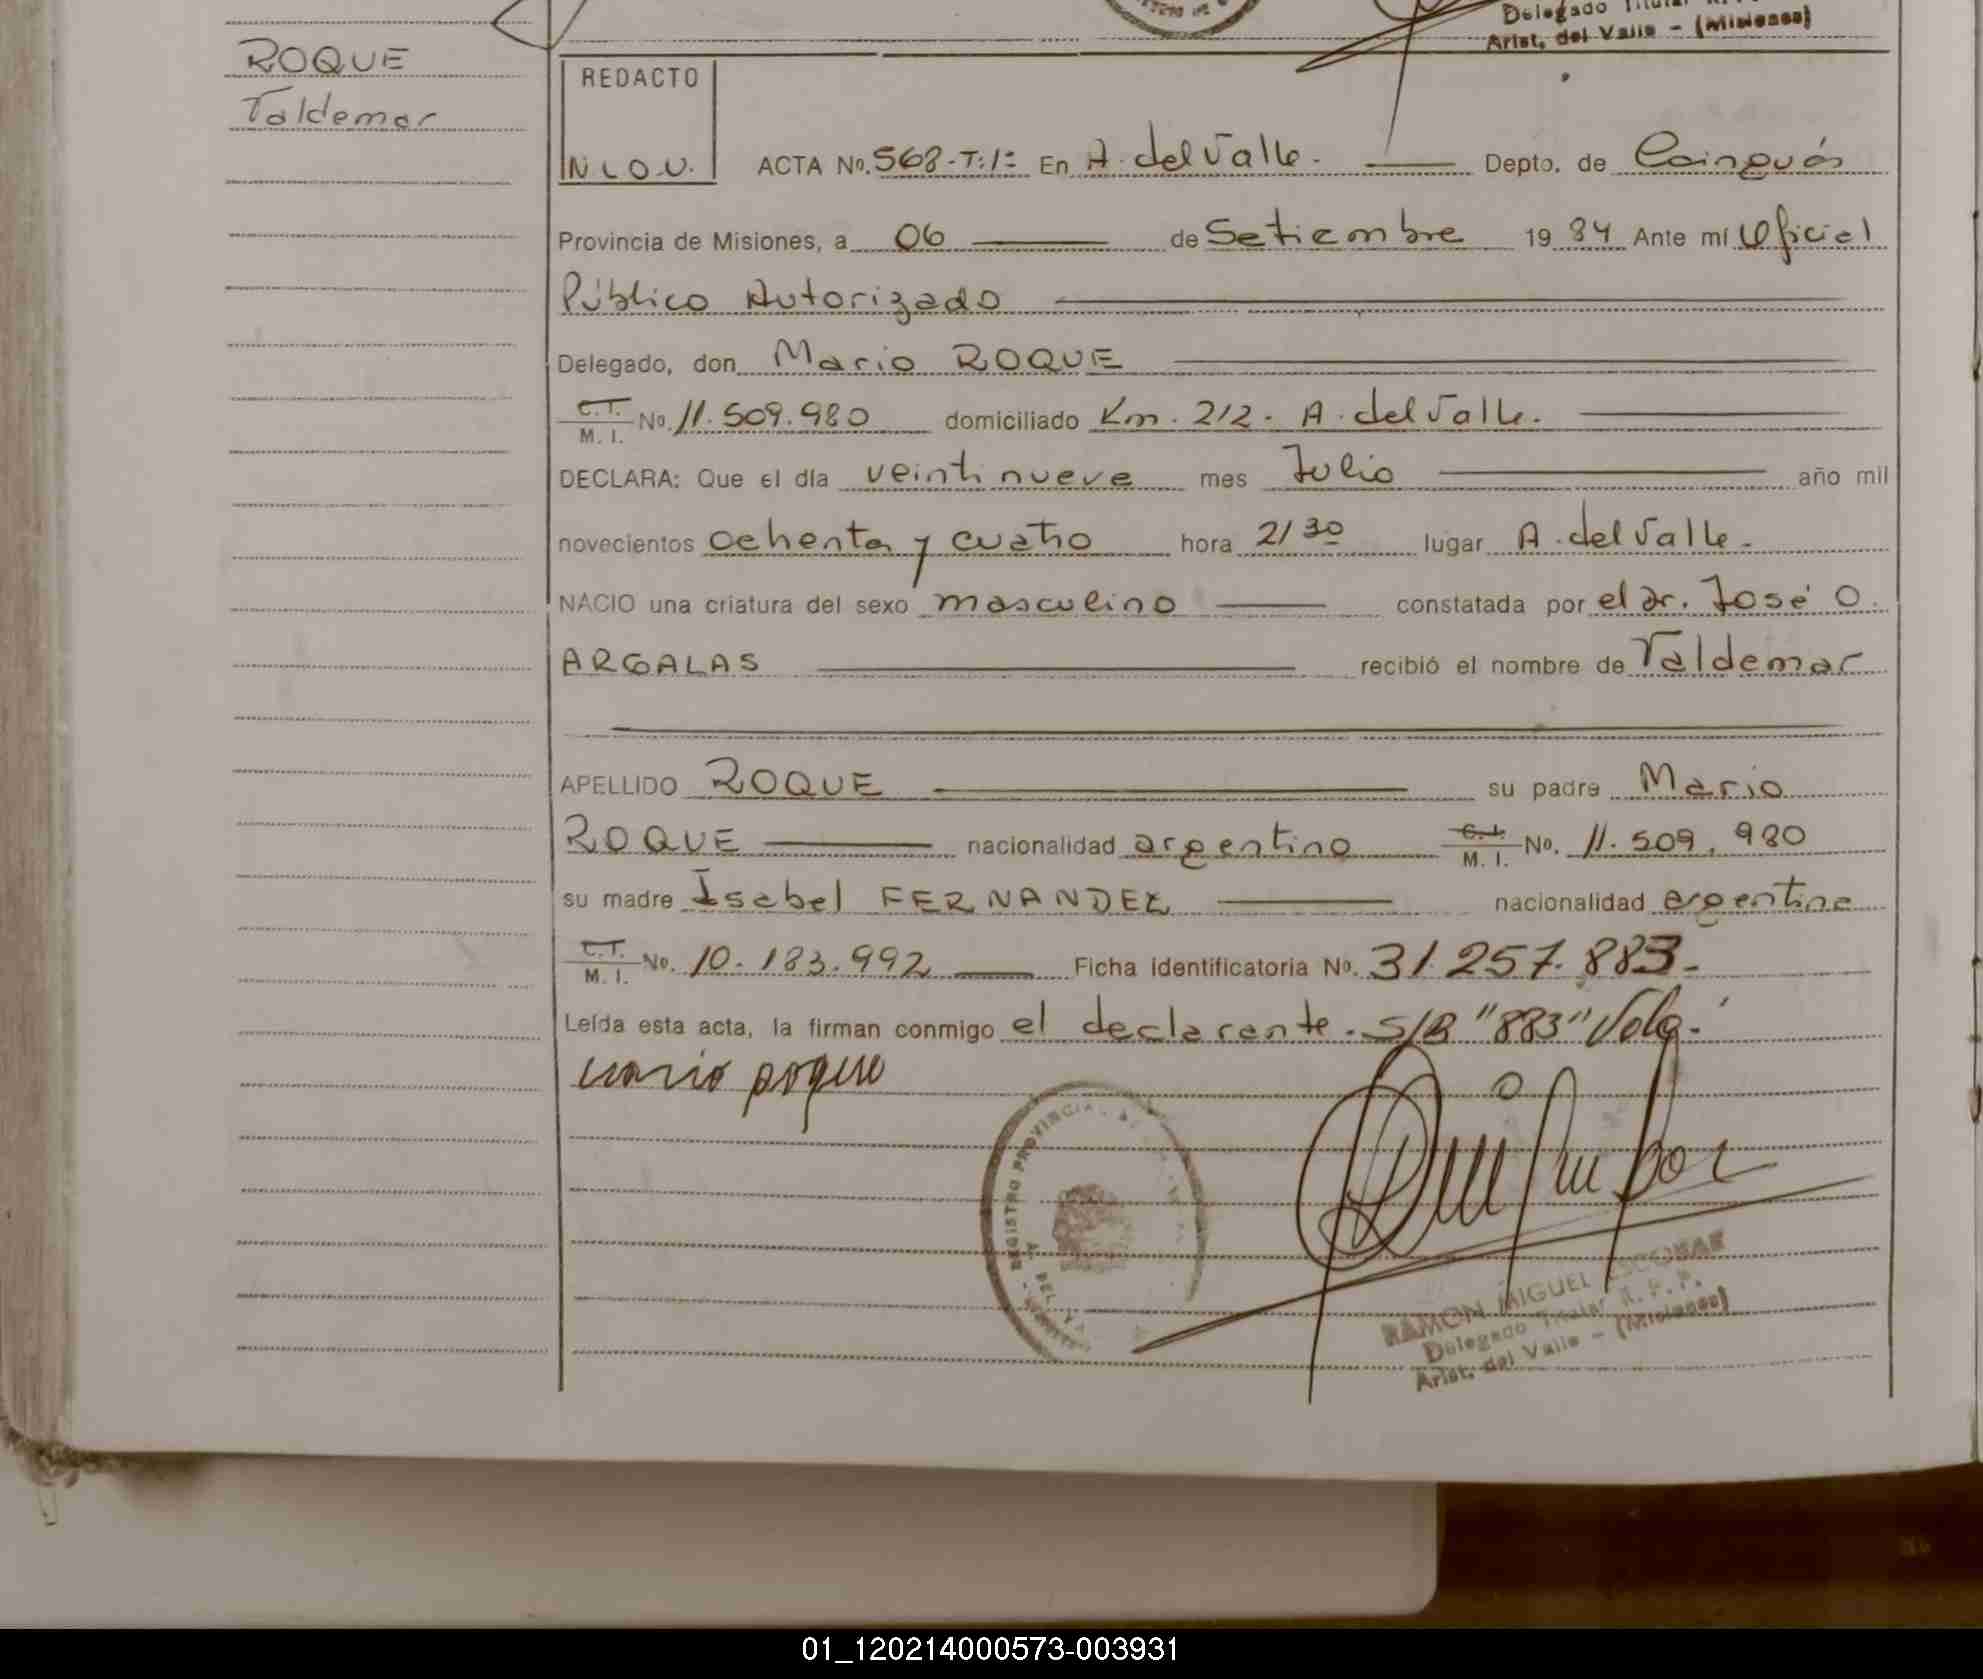 Delegado Titular R.P.P.
Arist. del Valle - (Misiones)
ROQUE
Valdemar
REDACTO
N L O.U.
ACTA No. 568-T:1º En A. del Valle. Depto. de Cainguás
Provincia de Misiones, a 06 de Setiembre 19 84 Ante mí Oficial
Público Autorizado
Delegado, don Mario ROQUE
C.I. M. I. No. 11.509.980 domiciliado Km. 212. A. del Valle.
DECLARA: Que el día veintinueve mes Julio año mil
novecientos ochenta y cuatro hora 21 30 lugar A. del Valle.
NACIO una criatura del sexo masculino constatada por el Dr. José O.
ARGALAS recibió el nombre de Valdemar
APELLIDO ROQUE su padre Mario
ROQUE nacionalidad argentino C.I. M. I. No. 11.509.980
su madre Isabel FERNANDEZ nacionalidad argentina
C.I. M. I. No. 10.183.992 Ficha Identificatoria No. 31.257.883.-
Leída esta acta, la firman conmigo el declarante. S/B "883" Vale.-
mario roque
REGISTRO PROVINCIAL
A. DEL VA
RAMON MIGUEL ESCOBAR
Delegado Titular R.P.P.
Arist. del Valle - (Misiones)
01_120214000573-003931